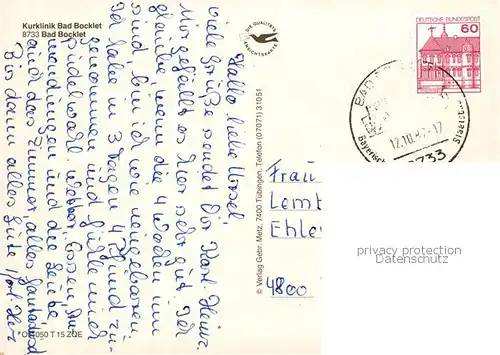 Kurklinik Bad Bocklet
8733 Bad Bocklet
DIE QUALITÄTS
ANSICHTSKARTE
DEUTSCHE BUNDESPOST
60
12.10.8 -17
Bayerisch Staatsbad
8733
Hallo liebe Ursel,
viele Grüße sendet Dir Karl-Heinz.
Mir gefällt es hier sehr gut. Ich
glaube wenn die 4 Wochen um
sind, bin ich wie neugeboren.
Ich habe in 3 Tagen 4 Pfund zu-
genommen und fühle mich
pudelwohl. Wetter, Essen, An-
wendungen und die Leute
auch das Zimmer, alles
Bis dann alles Gute Karl-Heinz
© Verlag Gebr. Metz, 7400 Tübingen, Telefon (07071) 31051
*O 1050 T 15 ZOE
Frau
Lemb
Ehler
4800
privacy protection
Datenschutz